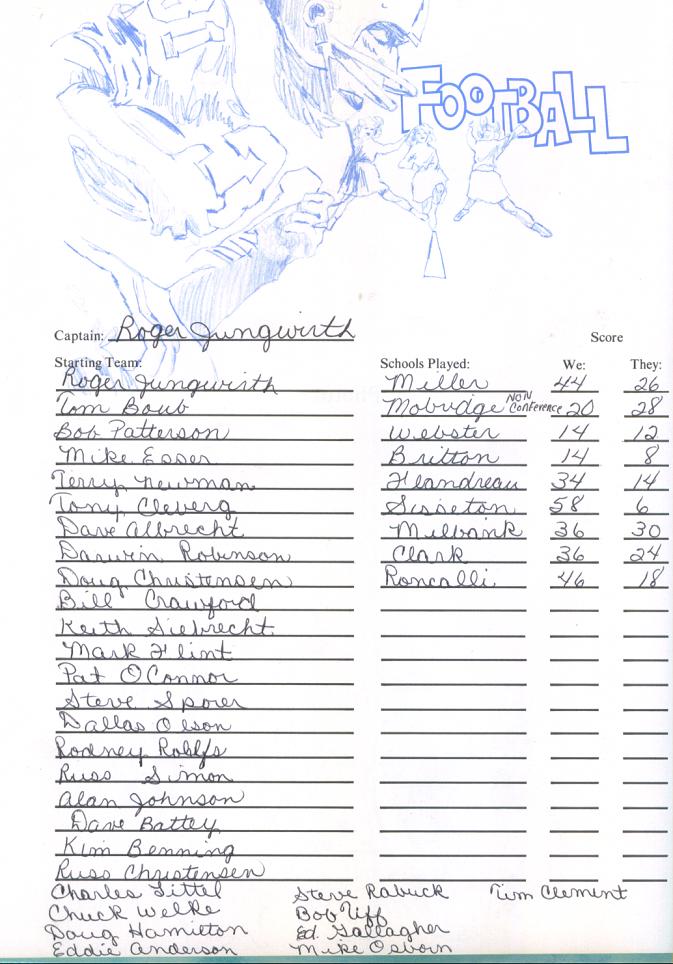 FOOTBALL
Captain: Roger Jungwirth
Score
Starting Team: Schools Played: We: They:
Roger Jungwirth Miller 44 26
Tom Boub Mobridge NON Conference 20 28
Bob Patterson Webster 14 12
Mike Esser Britton 14 8
Terry Newman Flandreau 34 14
Tony Cleberg Sisseton 58 6
Dave Albrecht Milbank 36 30
Darwin Robinson Clark 36 24
Doug Christensen Roncalli 46 18
Bill Crawford
Keith Siebrecht
Mark Flint
Pat O'Connor
Steve Sporer
Dallas Olson
Rodney Rohlfs
Russ Simon
Alan Johnson
Dave Battey
Kim Benning
Russ Christensen
Charles Tittel Steve Rabuck Tim Clement
Chuck Welke Bob Tiff
Doug Hamilton Ed. Gallagher
Eddie Anderson Mike Osborn